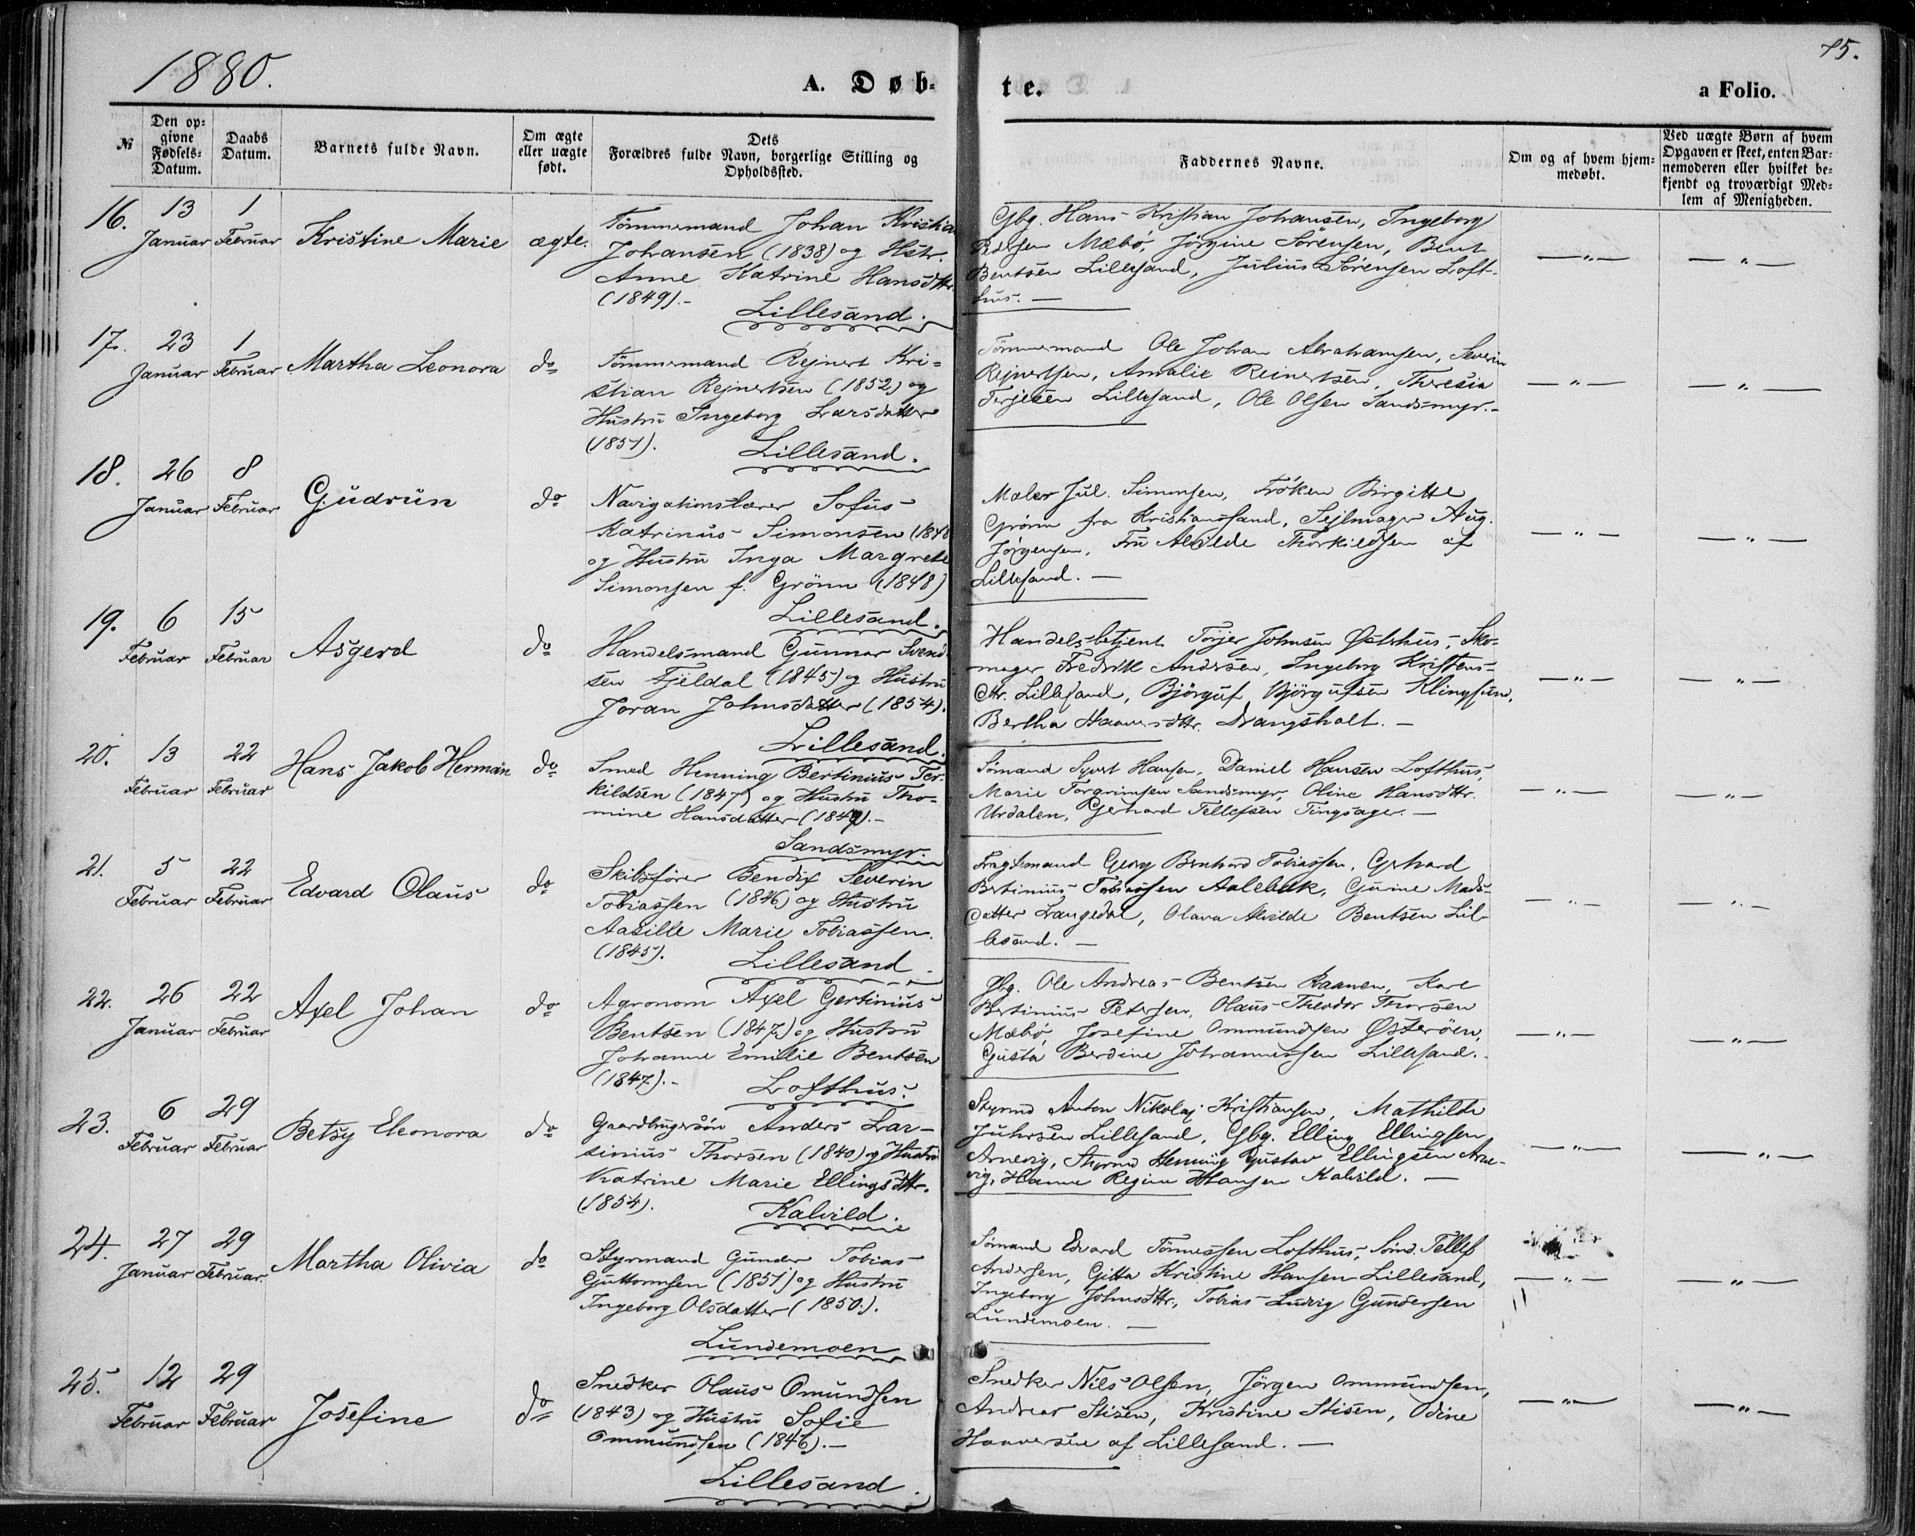 1880.
A. Døb-
te.
a Folio.
75.
№
Den op-
givne
Fødsels-
Datum.
Daabs
Datum.
Barnets fulde Navn.
Om ægte
eller uægte
født.
Dets
Forældres fulde Navn, borgerlige Stilling og
Opholdssted.
Faddernes Navne.
Om og af hvem hjem-
medøbt.
Ved uægte Børn af hvem
Opgaven er skeet, enten Bar-
nemoderen eller hvilket be-
kjendt og troværdigt Med-
lem af Menigheden.
16.
13
Januar
1
Februar
Kristine Marie
ægte.
Tømmermand Johan Kristia
Johansen (1838) og Hstr.
Anne Katrine Hansdttr.
(1849).-
Lillesand.
Gbg. Hans Kristian Johansen, Ingeborg
Mæbø, Jørgine Sørensen, Bent
Bentsen Lillesand, Julius Sørensen Loft-
hus. —
— " —
— " —
17.
23
Januar
1
Februar
Martha Leonora
do
Tømmermand Rejnert Kri-
stian Rejnertsen (1852) og
Hustru Ingeborg Larsdatter
(1851).
Lillesand.
Tømmermand Ole Johan Abrahamsen, Severin
Rejnertsen, Amalie Reinertsen, Theresia
Terjesen Lillesand, Ole Olsen Sandsmyr.-
— " —
— " —
18.
26
Januar
8
Februar
Gudrun
do
Navigationslærer Sofus
Katrinus Simonsen (1848
og Hustru Inga Margrete
Simonsen f. Grønn (1848)
Lillesand.
Maler Jul. Simonsen, Frøken Birgitte
Grønn fra Kristianssand, Sejlmager Aug.
Jørgensen, Fru Alvilde Thorkildsen af
Lillesand. —
— " —
— " —
19.
6
Februar
15
Februar
Asgerd
do
Handelsmand Gunnar Svend
sen Fjeldal (1845) og Hustru
Joran Johnsdatter (1854).
Lillesand.
Handelsbetjent Torjer Johnsen Østerhus, Sko-
mager Fredrik Andersen, Ingeborg Kristens-
dtr. Lillesand, Bjørguf Bjørgufsen
Bertha Haaversdttr. Drangsholt. —
— " —
— " —
20.
13
Februar
22
Februar
Hans Jakob Herman
do
Smed Henning Bertinius Ter-
kildsen (1847) og Hustru Tho-
mine Hansdatter (1849).-
Sandsmyr.
Sømand Syvert Hansen, Daniel Hansen Lofthus,
Marie Torgrimsen Sandsmyr, Oline Hansdttr.
Urdalen, Gerhard Tellefsen Tingsager. —
— " —
— " —
21.
5
Februar
22
Februar
Edvard Olaus
do
Skibsfører Bendix Severin
Tobiassen (1846) og Hustru
Aasille Marie Tobiassen.
(1845).
Lillesand.
Fragtemand Georg Bernhard Tobiassen, Gerhard
Bertinius Tobiassen Aalebæk, Gurine Mads-
datter Langedal, Olava Alvilde Bentsen Lil-
lesand. —
— " —
— " —
22.
26
Januar
22
Februar
Axel Johan
do
Agronom Axel Gertinius
Bentsen (1847) og Hustru
Johanne Emilie Bentsen
(1847).-
Lofthus.
Gbg. Ole Andreas Bentsen Raanen, Karl
Bertinius Petersen, Olaus Theodor Thorsen
Mæbø, Josefine Ommundsen Østerøen,
Gusta Berdine Johannessen Lillesand.
— " —
— " —
23.
6
Februar
29
Februar
Betsy Eleonora
do
Gaardbrugersøn Anders Lar-
sinius Thorsen (1840) og Hustru
Katrine Marie Ellingsdttr.
(1854).
Kalvild.
Styrmd Anton Nikolaj Kristiansen, Mathilde
Juhrsen Lillesand, Gbg. Elling Ellingsen
Arnevig, Styrmd Henning Gustav Ellingsen Arne-
vig, Hanne Regine Hansen Kalvild. —
— " —
— " —
24.
27
Januar
29
Februar.
Martha Olivia
do
Styrmand Gunder Tobias
Guttormsen (1851) og Hustru
Ingeborg Olsdatter (1850).
Lundemoen
Sømand Edvard Tønnessen Lofthus, Sømd. Tellef
Andersen, Gitta Kristine Hansen Lillesand,
Ingeborg Johnsdttr., Tobias Ludvig Gundersen
Lundemoen. —
— " —
— " —
25.
12
Februar
29
Februar
Josefine
do
Snedker Olaus Omundsen
(1843) og Hustru Sofie
Ommundsen (1846).—
Lillesand.
Snedker Nils Olsen, Jørgen Ommundsen,
Andreas Stisen, Kristine Stisen, Odine
Haaversen af Lillesand. —
— " —
— " —